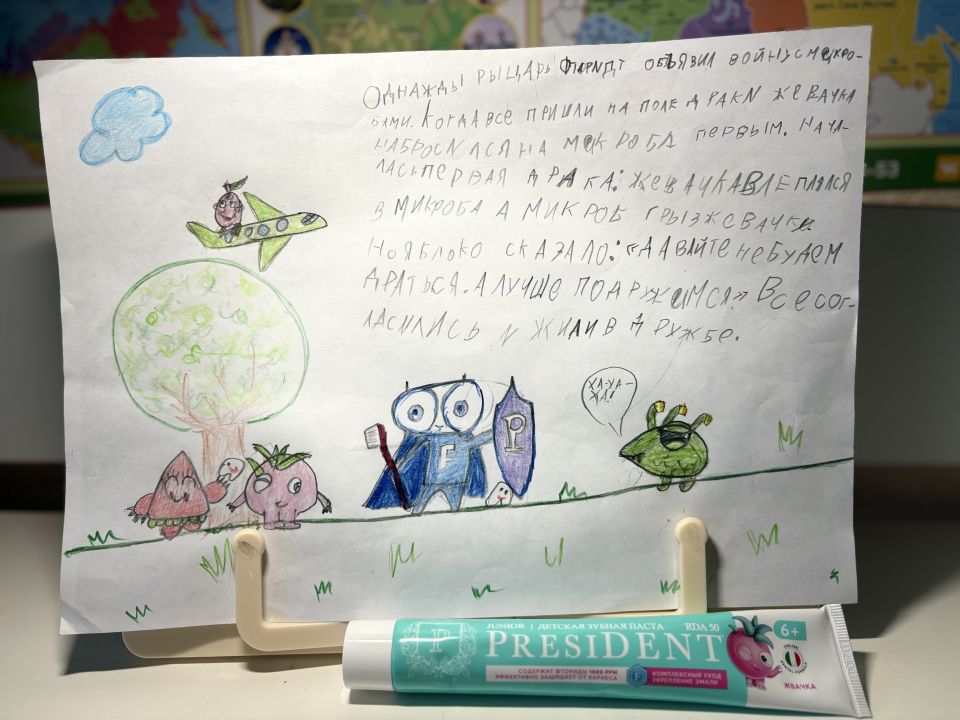 Однажды рыцарь Фторидт объявил войну с микро-
бами. Когда все пришли на поле драки жевачка
набросился на микроба первым. Нача-
лась первая драка: жевачка влеплялся
в микроба а микроб грыз жевачку.
Но яблоко сказало: «давайте не будем
драться. А лучше подружимся» Все сог-
ласились и жили в дружбе.
ХА-ХА-
ХА!
F
P
-63
JUNIOR | ДЕТСКАЯ ЗУБНАЯ ПАСТА RDA 50
PRESIDENT
P
6+
СОДЕРЖИТ ФТОРИДЫ 1000 PPM
ЭФФЕКТИВНО ЗАЩИЩАЕТ ОТ КАРИЕСА
F
КОМПЛЕКСНЫЙ УХОД
УКРЕПЛЕНИЕ ЭМАЛИ
ЖВАЧКА